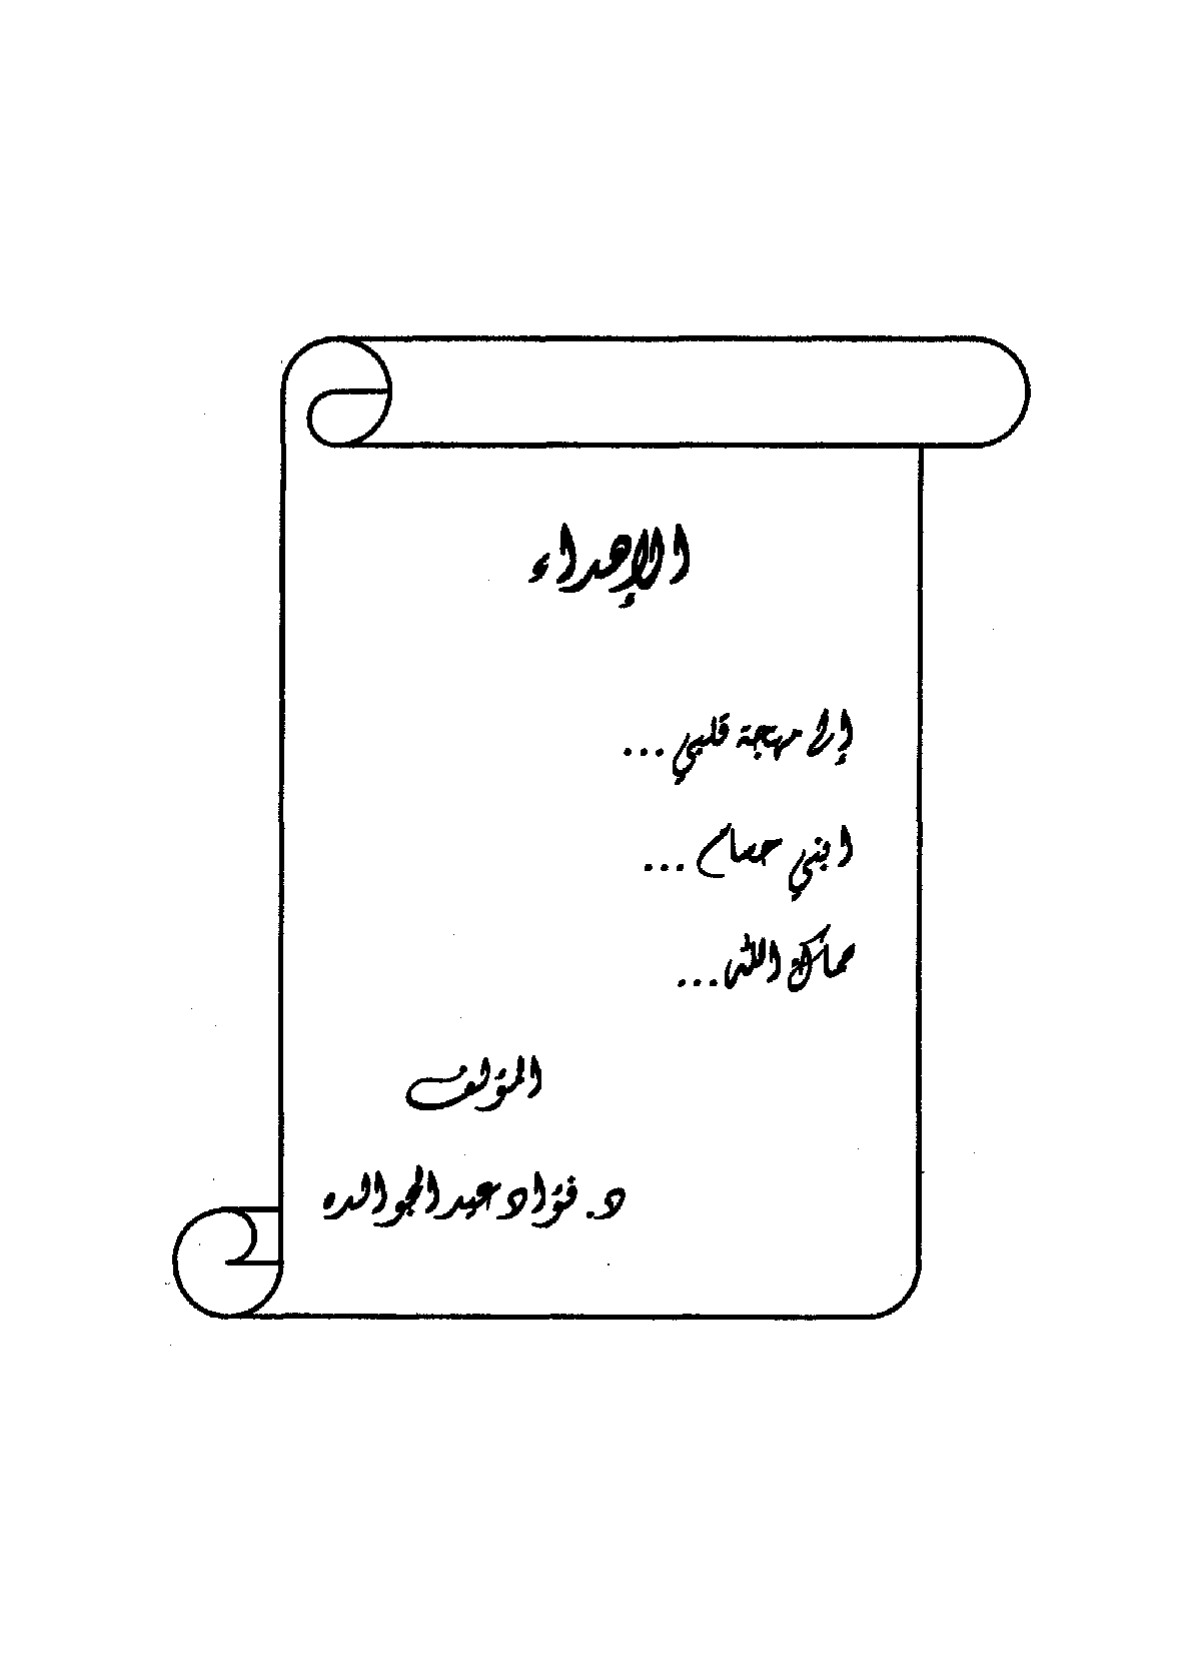 الإهداء
إلى مهجة قلبي ...
ابني حسام ...
حماك الله...
المؤلف
د. فؤاد عيد الجوالده